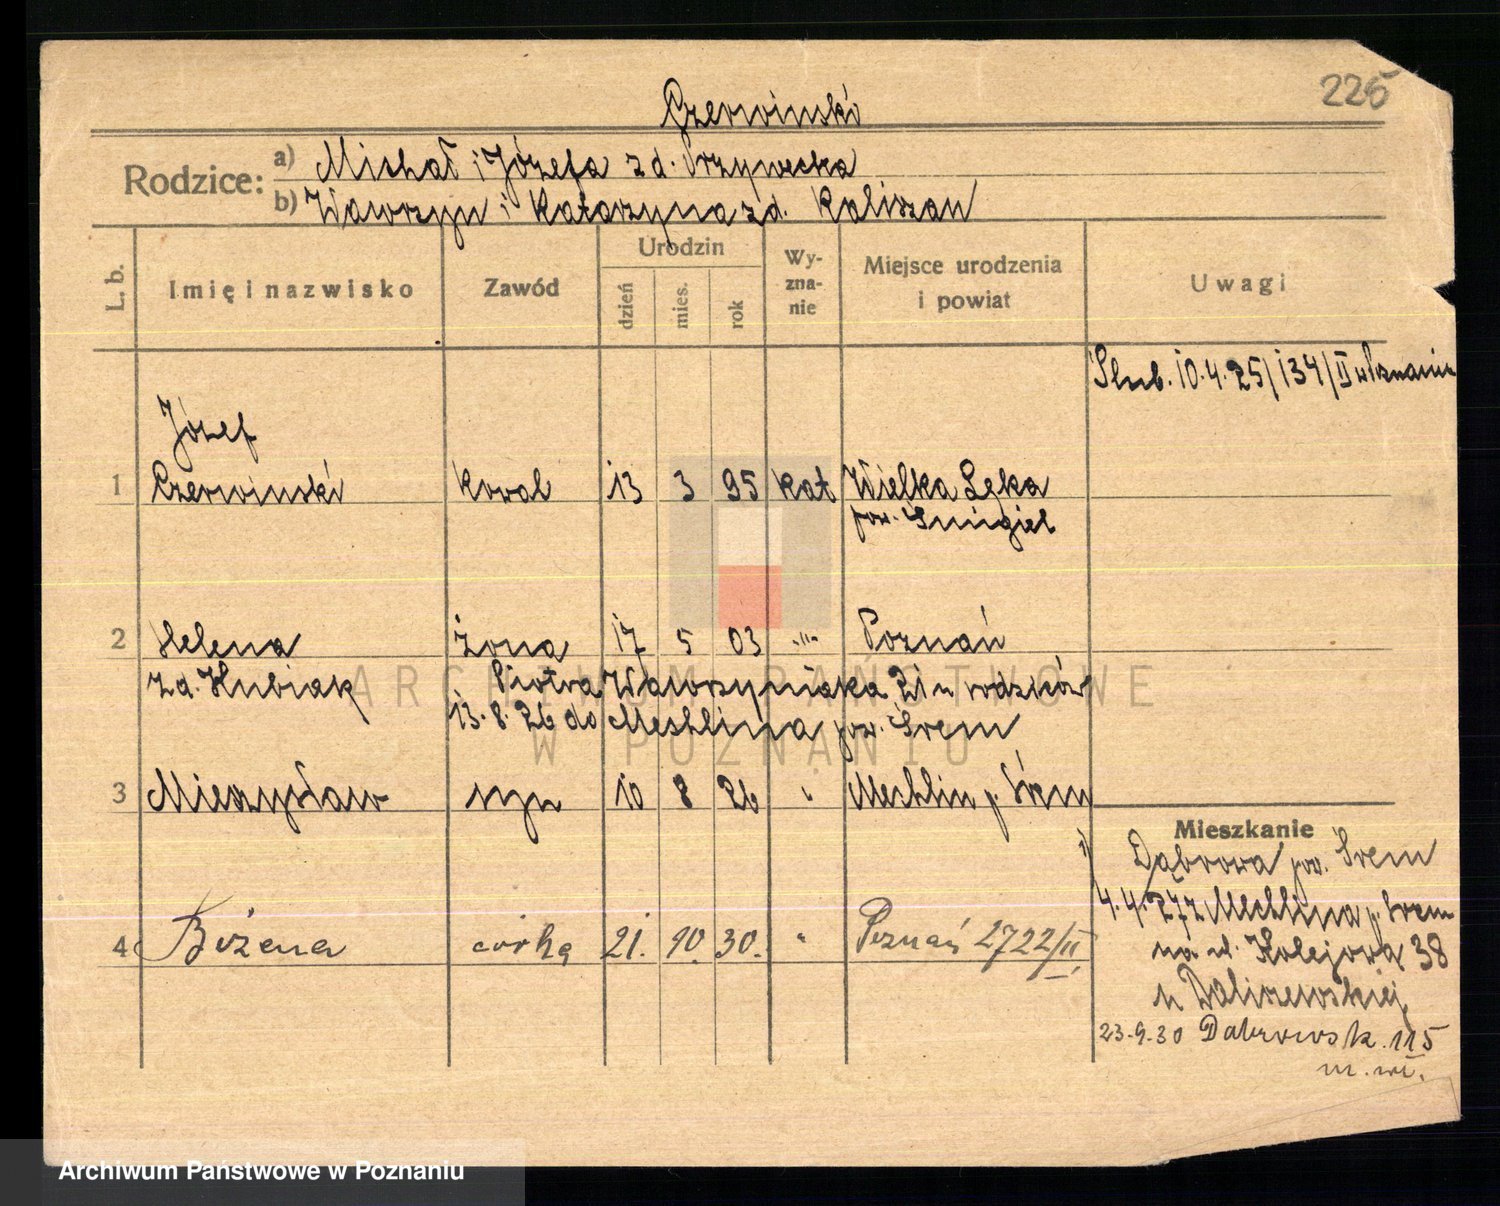 225
Czerwiński
Rodzice: a) Michał i Józefa z d. Przywecka
b) Wawrzyn i Katarzyna z d. Kaliszan
L. b. Imię i nazwisko Zawód Urodzin dzień mies. rok Wyznanie Miejsce urodzenia i powiat Uwagi
Ślub. 10.4.25/134/II w Poznaniu
Józef
1 Czerwiński kowal 13 3 95 kat Wielka Łęka
pow. Śmigiel
2 Helena żona 17 5 03 -"- Poznań
z d. Kubiak Piotra Wawrzyniaka 21 u rodziców
13.8.26 do Mechlina pow. Śrem
3 Mieczysław syn 10 8 26 " Mechlin p. Śrem
Mieszkanie
Dąbrowa pow. Śrem
4.4.27 z Mechlina p. Śrem
4 Bożena córka 21. 10. 30. " Poznań 2722/II
na ul. Kolejowa 38
u Daliszewskiej
23.9.30 Dąbrowsk. 115
m. wł.
ARCHIWUM PAŃSTWOWE
W POZNANIU
Archiwum Państwowe w Poznaniu